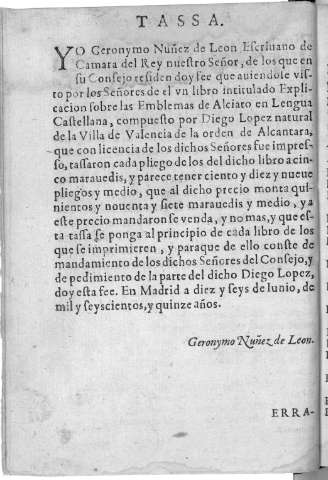 TASSA.
YO Geronymo Nuñez de Leon Escriuano de
Camara del Rey nuestro Señor, de los que en
su Consejo residen doy fee que auiendose vis-
to por los Señores de el vn libro intitulado Expli
cacion sobre las Emblemas de Alciato en Lengua
Castellana, compuesto por Diego Lopez natural
de la Villa de Valencia de la orden de Alcantara,
que con licencia de los dichos Señores fue impres-
so, tassaron cada pliego de los del dicho libro a cin-
co marauedis, y parece tener ciento y diez y nueue
pliegos y medio, que al dicho precio monta qui-
nientos y nouenta y siete marauedis y medio, y a
este precio mandaron se venda, y no mas, y que es-
ta tassa se ponga al principio de cada libro de los
que se imprimieren, y paraque de ello conste de
mandamiento de los dichos Señores del Consejo, y
de pedimiento de la parte del dicho Diego Lopez,
doy esta fee. En Madrid a diez y seys de Iunio, de
mil y seyscientos, y quinze años.
Geronymo Nuñez de Leon.
ERRA-